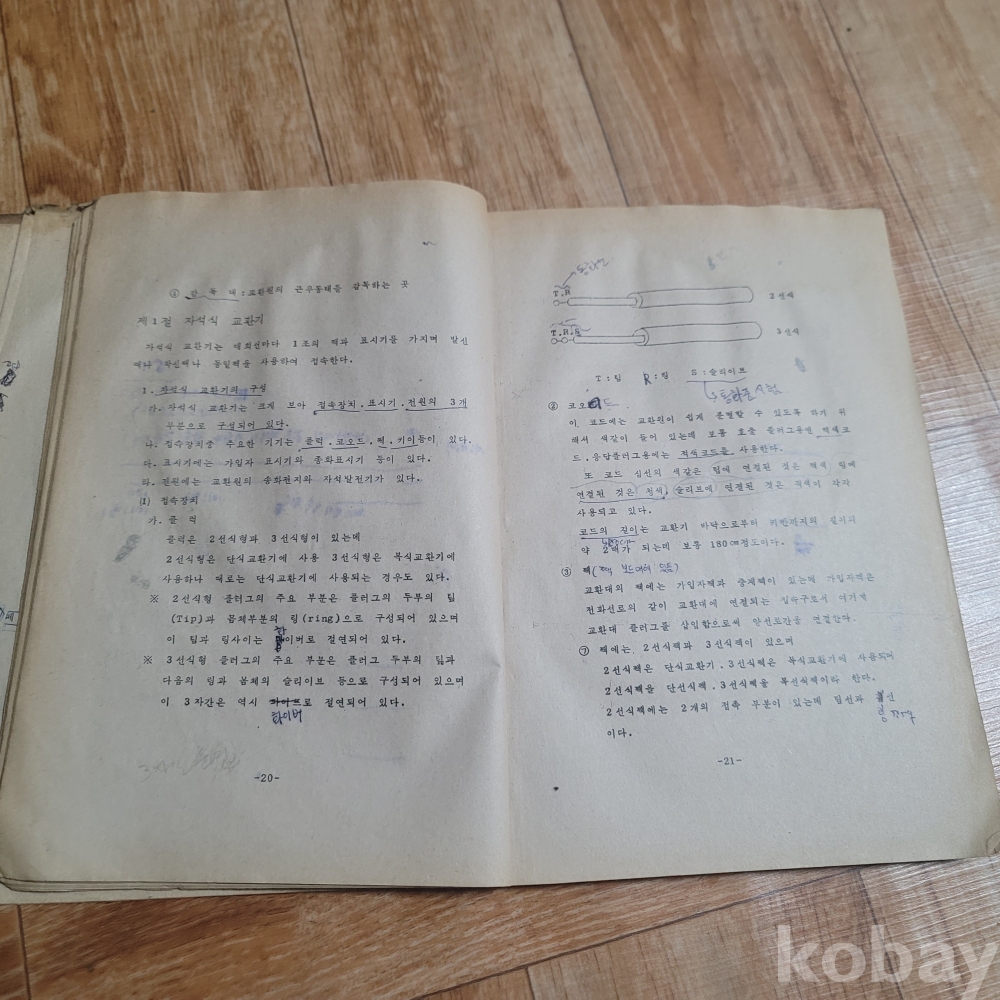 ④ 감 독 대 : 교환원의 근무동태를 감독하는 곳
제1절 자석식 교환기
자석식 교환기는 매회선마다 1조의 잭과 표시기를 가지며 발신
에나 착신에나 동일잭을 사용하여 접속한다.
1. 자석식 교환기의 구성
가. 자석식 교환기는 크게 보아 접속장치. 표시기. 전원의 3개
부분으로 구성되어 있다.
나. 접속장치중 주요한 기기는 플럭. 코오드. 잭. 키이등이 있다.
다. 표시기에는 가입자 표시기와 종화표시기 등이 있다.
라. 전원에는 교환원의 송화전지와 자석발전기가 있다.
(1) 접속장치
가. 플 럭
플럭은 2선식형과 3선식형이 있는데
2선식형은 단식교환기에 사용 3선식형은 복식교환기에
사용하나 때로는 단식교환기에 사용되는 경우도 있다.
※ 2선식형 플러그의 주요 부분은 플러그의 두부의 팁
(Tip)과 몸체부분의 링(ring)으로 구성되어 있으며
이 팁과 링사이는 화이버로 절연되어 있다.
※ 3선식형 플러그의 주요 부분은 플러그 두부의 팁과
다음의 링과 몸체의 슬리이브 등으로 구성되어 있으며
이 3자간은 역시 로 절연되어 있다.
화이버
-20-
T.R
2선식
T.R.S
3선식
T:팁 R:링 S:슬리이브
통화중 시험
② 코오드
이 코드에는 교환원이 쉽게 분별할 수 있도록 하기 위
해서 색갈이 들어 있는데 보통 호출 플러그용엔 백색코
드. 응답플러그용에는 적색코드를 사용한다.
또 코드 심선의 색갈은 팁에 연결된 것은 백색 링에
연결된 것은 청색, 슬리브에 연결된 것은 적색이 각자
사용되고 있다.
코드의 길이는 교환기 바닥으로부터 키반까지의 길이의
약 2배가 되는데 보통 180cm정도이다.
③ 잭
교환대의 잭에는 가입자잭과 중계잭이 있는데 가입자잭은
전화선로의 같이 교환대에 연결되는 접속구로써 여기에
교환대 플러그를 삽입함으로써 양선로간을 연결한다.
⑦ 잭에는 2선식잭과 3선식잭이 있으며
2선식잭은 단식교환기. 3선식잭은 복식교환기에 사용되며
2선식잭을 단선식잭. 3선식잭을 복선식잭이라 한다.
2선식잭에는 2개의 접촉 부분이 있는데 팁선과 링선
이다.
-21-
kobay